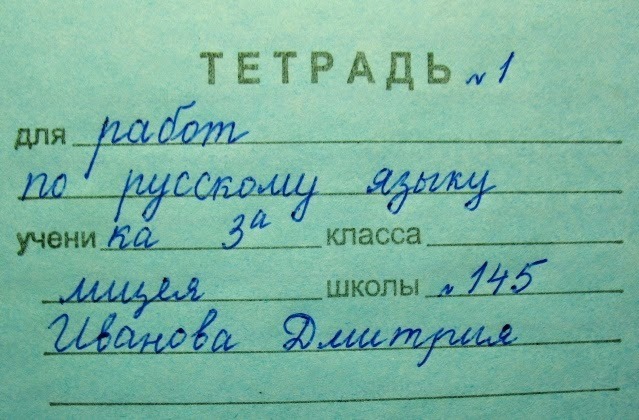 ТЕТРАДЬ №1
для работ
по русскому языку
ученика 3а класса
лицея школы №145
Иванова Дмитрия